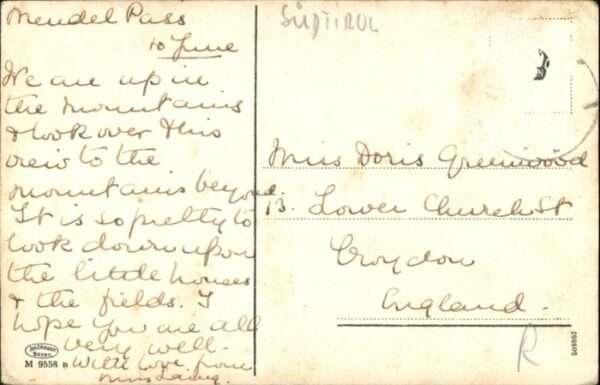 Mendel Pass
10 June
We are up in
the mountains
& look over this
view to the
mountains beyond.
It is so pretty to
look down upon
the little houses
& the fields. I
hope you are all
very well.
With love from
Miss
M 9558 B
SÜDTIROL
Miss Doris Greenwood
13. Lower Church St
Croydon
England.
R